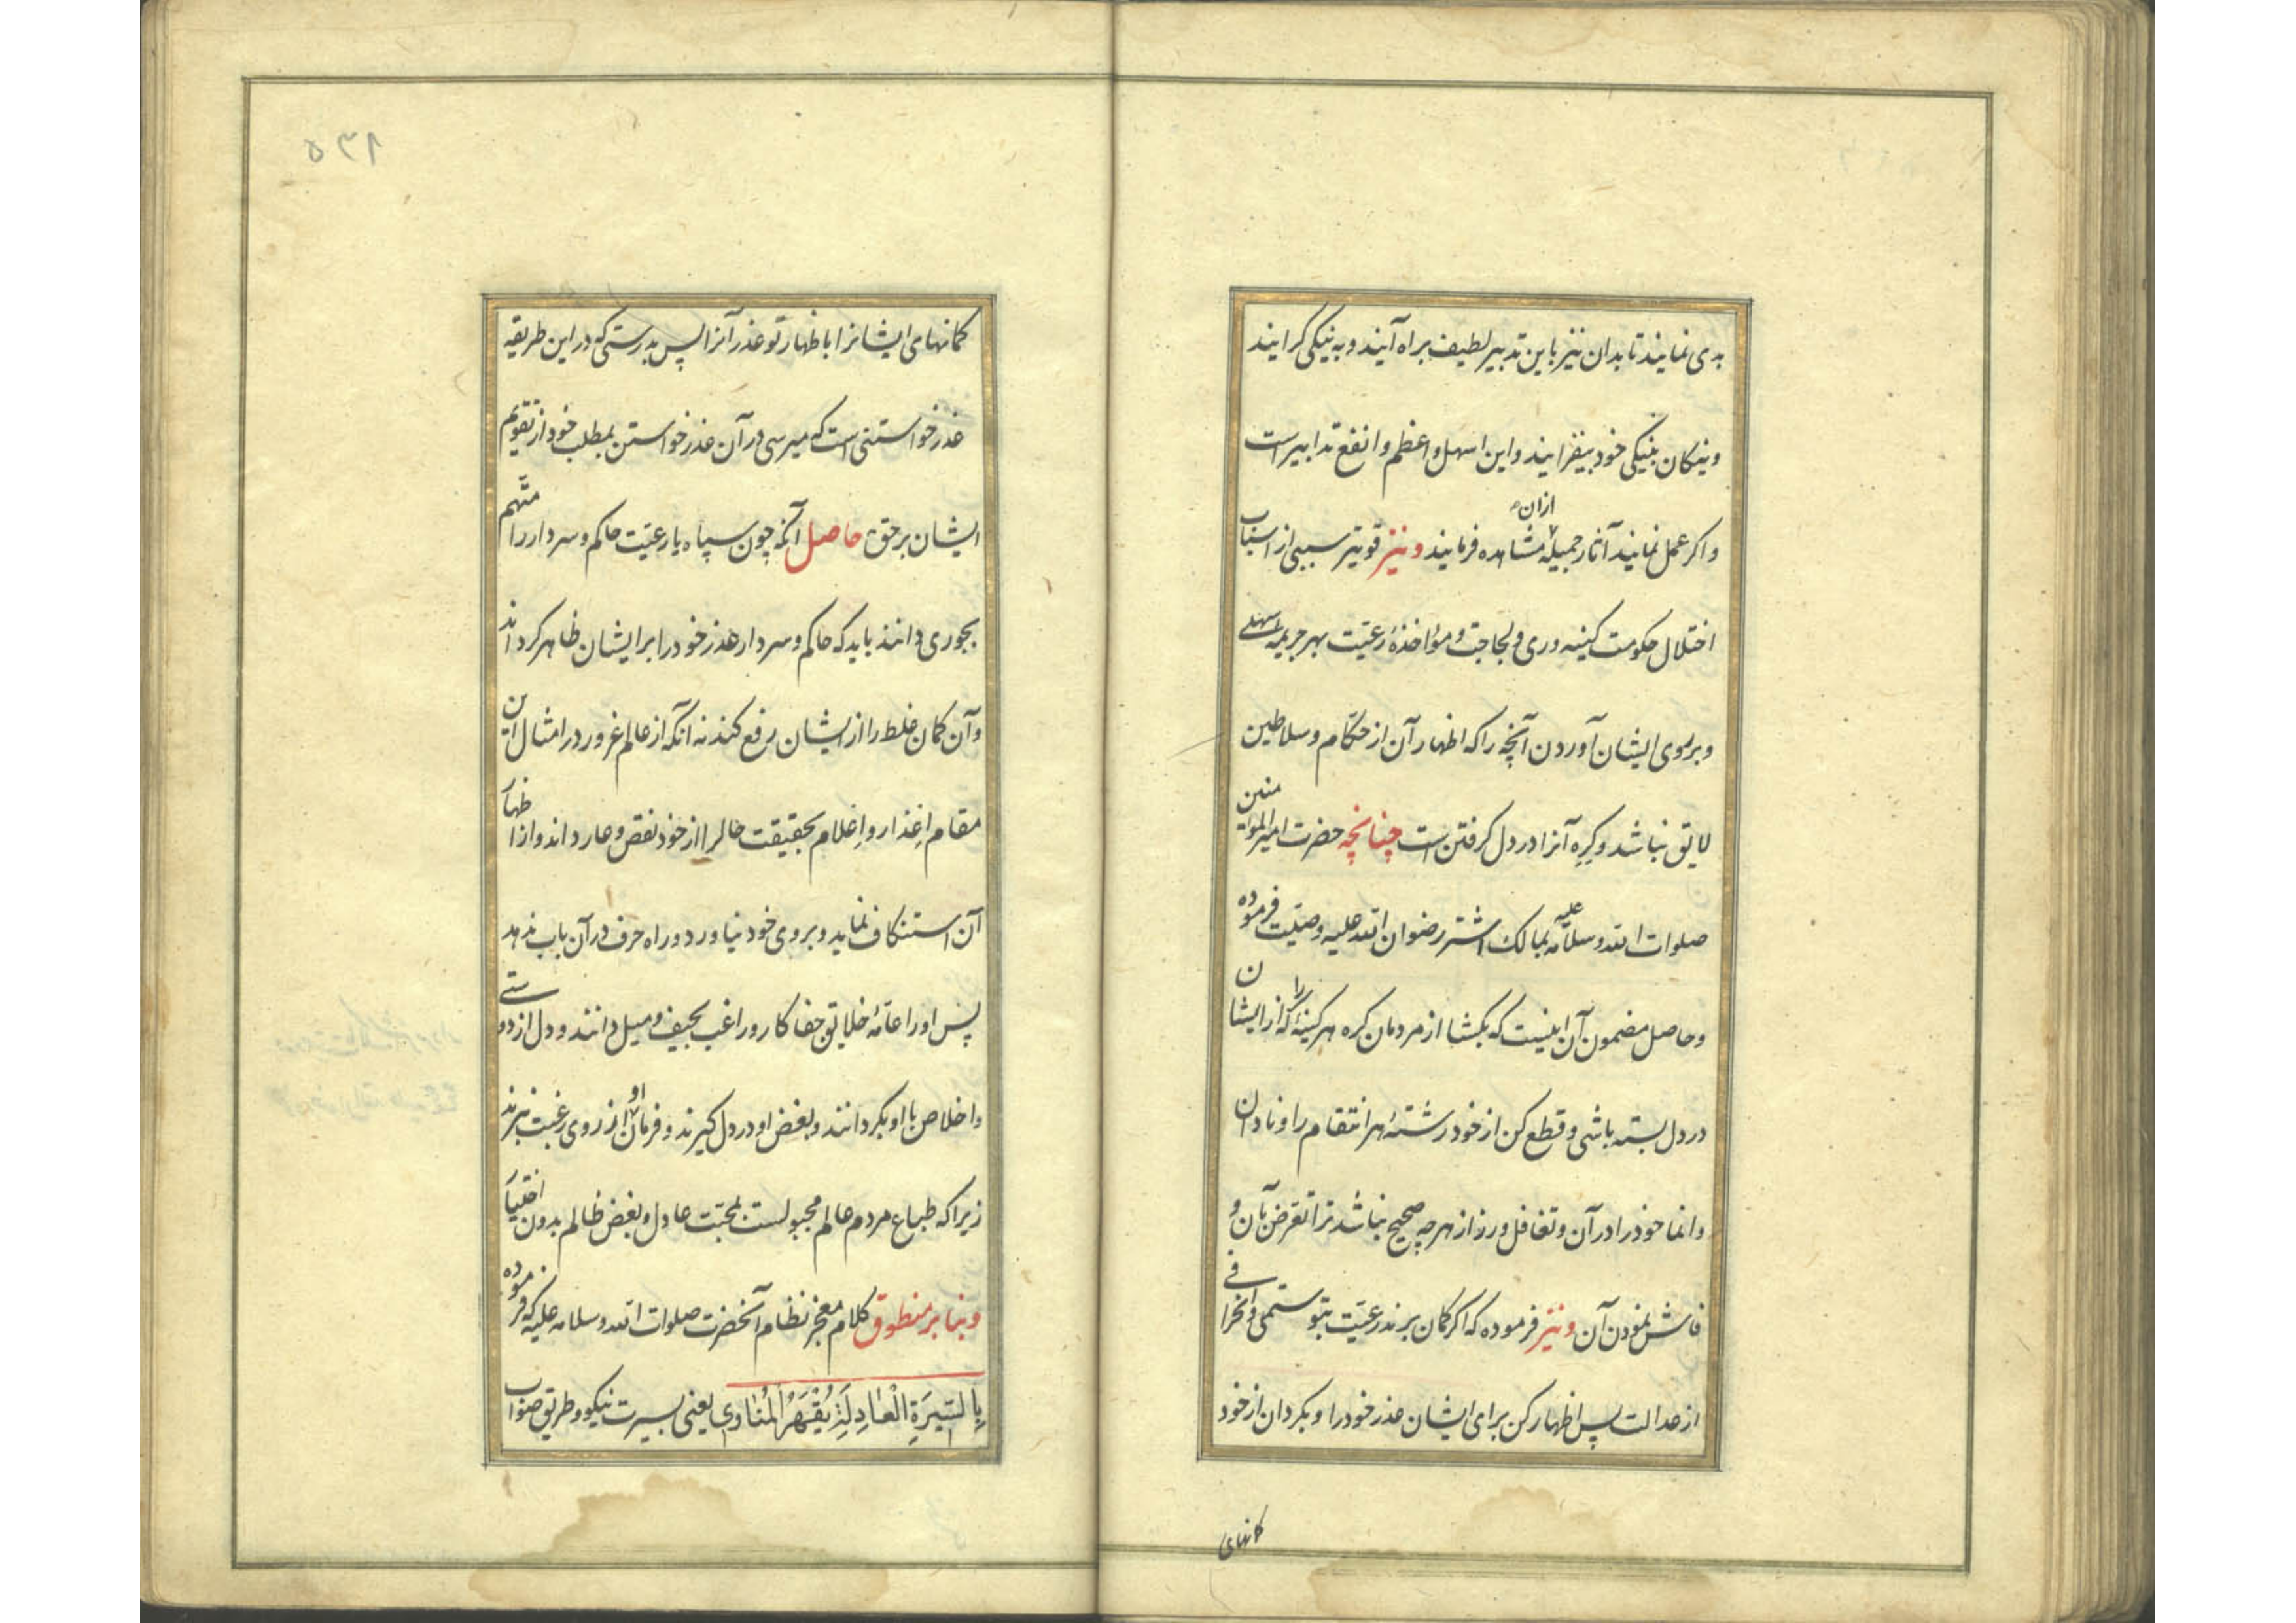 بدی نمایند تا بدان نیز باین تدبیر لطیف براه آیند و به نیکی گرایند
و نیکان بنیکی خود بیفزایند و این اسهل و اعظم و انفع تدابیر است
و اکر عمل نمایند آثار جمیلهٔ از ان مشاهده فرمایند و نیز قویتر سببی از اسباب
اختلال حکومت کینه وری و لجاجت و مؤاخذهٔ رعیّت بهر جریمهٔ سهلی
و بر روی ایشان آوردن آنچه را که اظهار آن از حکّام و سلاطین
لایق نباشد و کره آنرا در دل کرفتن است چنانچه حضرت امیر المؤمنین
صلوات الله و سلامه علیه بمالک اشتر رضوان الله علیه وصیّت فرموده
و حاصل مضمون آن اینست که بکشا از مردمان کره هر کینهٔ را که از ایشان
در دل بسته باشی و قطع کن از خود رشتهٔ هر انتقام را و نادان
وانما خود را در آن و تغافل ورز از هر چه صحیح نباشد ترا تعرّض بآن و
فاش نمودن آن و نیز فرموده که اکر کمان برند رعیّت بتو ستمی و انحرافی
از عدالت پس اظهار کن برای ایشان عذر خود را و بکردان از خود
کمانهای
۵۳۹
کمانهای ایشانرا باظهار تو عذر آنرا پس بدرستی که در این طریقه
عذر خواستنی است که میرسی در آن عذر خواستن بمطلب خود از تقویم
ایشان بر حق حاصل آنکه چون سپاه یا رعیّت حاکم و سردار را متّهم
بجوری دانند باید که حاکم و سردار عذر خود را بر ایشان ظاهر کرداند
و آن کمان غلط را از ایشان رفع کند نه آنکه از عالم غرور در امثال این
مقام اِعذار و اِعلام بحقیقت حال را از خود نقص و عار داند و از اظهار
آن استنکاف نماید و بروی خود نیاورد و راه حرف در آن باب ندهد
پس او را عامّهٔ خلایق جفا کار و راغب بحیف و میل دانند و دل از دوستی
و اخلاص با او بکردانند و بغض او در دل کیرند و فرمان او از روی رغبت نبرند
زیرا که طباع مردم عالم مجبولست بمحبّت عادل و بغض ظالم بدون اختیار
و بنا بر منطوق کلام معجز نظام آنحضرت صلوات الله و سلامه علیه که فرموده
بِالسّیرَةِ الْعادِلَةِ یُقْهَرُ الْمُناوِی یعنی بسیرت نیکو و طریق صواب